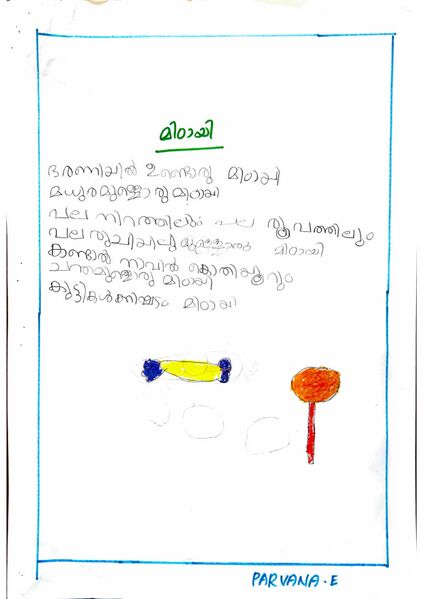 മിഠായി
ഭരണിയിൽ ഉണ്ടൊരു മിഠായി
മധുരമുള്ളൊരു മിഠായി
പല നിറത്തിലും പല രൂപത്തിലും
പല രുചിയിലുമുള്ളൊരു മിഠായി
കണ്ടാൽ നാവിൽ കൊതിയൂറും
ചന്തമുള്ളൊരു മിഠായി
കുട്ടികൾക്കിഷ്ടം മിഠായി
PARVANA. E